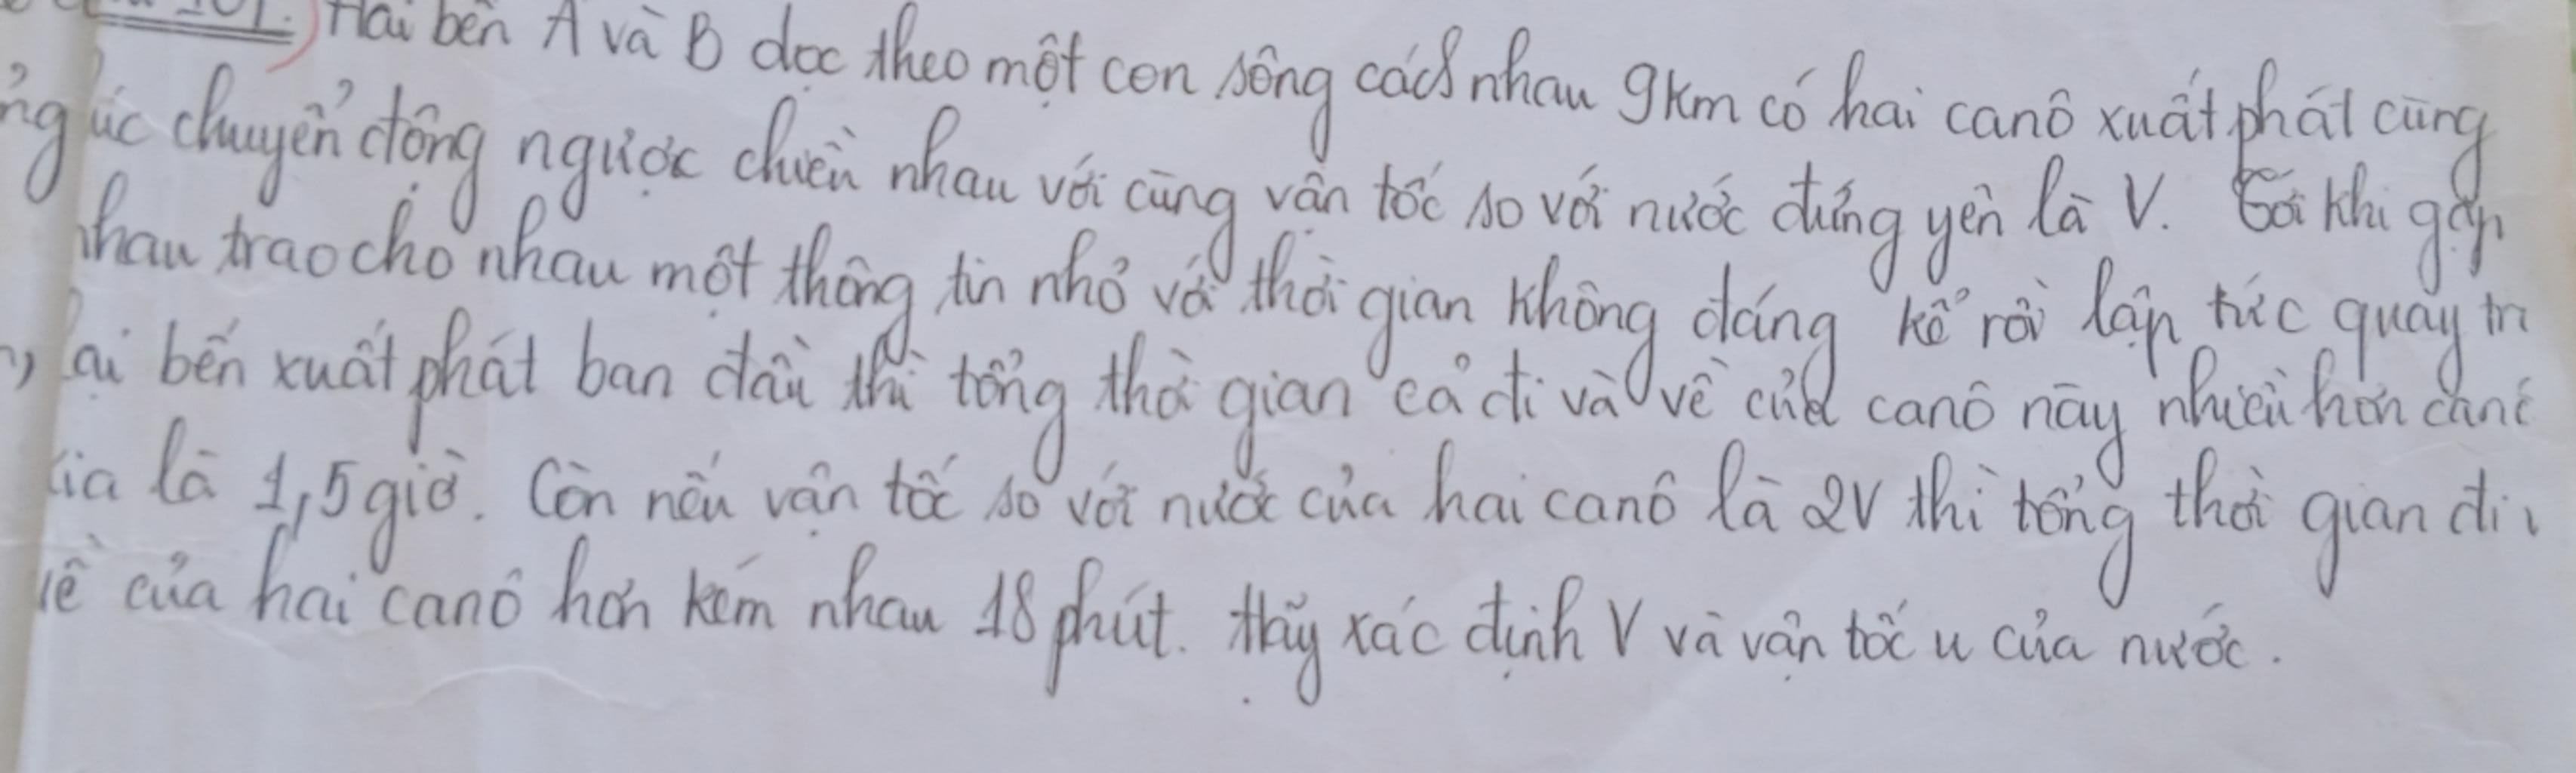 101. Hai bến A và B dọc theo một con sông cách nhau 9km có hai canô xuất phát cùng
úc chuyển động ngược chiều nhau với cùng vận tốc so với nước đứng yên là V. Tới khi gặp
nhau trao cho nhau một thông tin nhỏ với thời gian không đáng kể rồi lập tức quay tr
lại bến xuất phát ban đầu thì tổng thời gian cả đi và về của canô này nhiều hơn canô
kia là 1,5 giờ. Còn nếu vận tốc so với nước của hai canô là 2V thì tổng thời gian đi
về của hai canô hơn kém nhau 18 phút. Hãy xác định V và vận tốc u của nước.